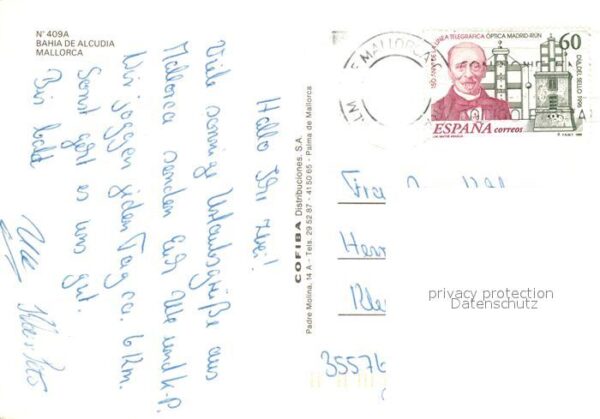 N° 409A
BAHIA DE ALCUDIA
MALLORCA
Hallo Ihr zwei!
Viele sonnige Urlaubsgrüße aus
Mallorca senden Euch Ute und K.P.
Wir joggen jeden Tag ca. 6 km.
Sonst geht es uns gut.
Bis bald
Ute
COFIBA Distribuciones, S.A.
Padre Molina, 14 A - Tels. 29 52 87 - 41 50 65 - Palma de Mallorca
DE MALLORCA
150 AÑOS DE LA LINEA TELEGRAFICA OPTICA MADRID-IRUN
60
DIA DEL SELLO 1996
ESPAÑA correos
Herr
privacy protection
Datenschutz
35576